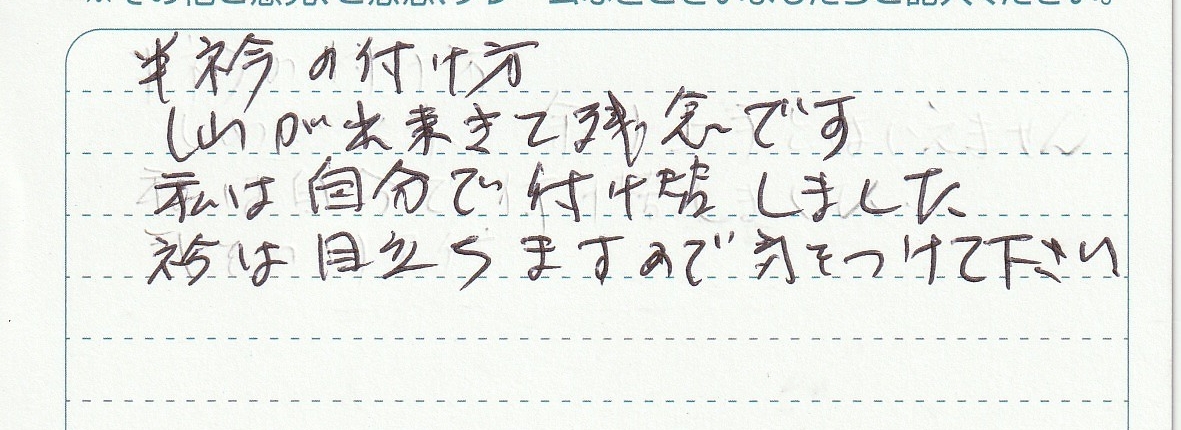 その他ご意見、ご感想、クレームなどございましたらご記入ください。
半衿の付け方
山が出来きて残念です
私は自分で付け直しました
衿は目立ちますので気をつけて下さい